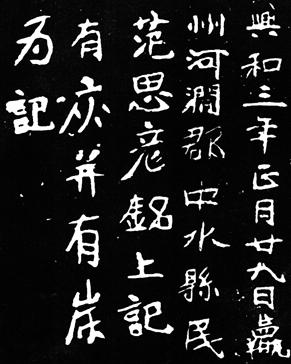 興和三年正月廿九日瀛
州河澗郡中水縣民
范思彦銘上記
有并有
为記